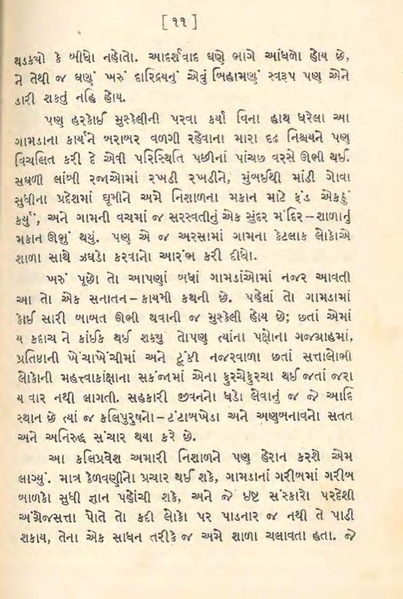 [ ૧૧ ]
થડકયો કે બીધો નહોતો. આદર્શવાદ ઘણે ભાગે આંધળો હોય છે,
ને તેથી જ ઘણું ખરું દારિદ્રયનું એવું બિહામણું સ્વરૂપ પણ એને
ડારી શકતું નહિ હોય.
પણ હરકોઈ મુસ્કેલીની પરવા કર્યા વિના હાથ ધરેલા આ
ગામડાના કાર્યને બરાબર વળગી રહેવાના મારા દૃઢ નિશ્ચયને પણ
વિચલિત કરી દે એવી પરિસ્થિતિ પછીનાં પાંચ૭ વરસે ઊભી થઈ.
સઘળી લાંબી રજાઓમાં રખડી રખડીને, મુંબઈથી માંડી ગોવા
સુધીના પ્રદેશમાં ઘૂમીને અમે નિશાળના મકાન માટે ફંડ એકઠું
કર્યું, અને ગામની વચમાં જ સરસ્વતીનું એક સુંદર મંદિર–શાળાનું
મકાન ઊભું થયું. પણ એ જ અરસામાં ગામના કેટલાક લોકોએ
શાળા સાથે ઝઘડો કરવાનો આરંભ કરી દીધો.
ખરું પૂછો તો આપણાં બધાં ગામડાંઓમાં નજર આવતી
આ તો એક સનાતન–કાયમી કથની છે. પહેલાં તો ગામડામાં
કોઈ સારી બાબત ઊભી થવાની જ મુસ્કેલી હોય છે; છતાં એમાં
ય કદાચ ને કાંઈક થઈ શક્યું તોપણ ત્યાંના પક્ષોના ગજગ્રાહમાં,
પ્રતિષ્ઠાની ખેંચાખેંચીમાં અને ટૂંકી નજરવાળા છતાં સત્તાલોભી
લોકોની મહત્ત્વાકાંક્ષાના સકંજામાં એના કુરચેકુરચા થઈ જતાં જરા
ય વાર નથી લાગતી. સહકારી જીવનનો ધડો લેવાનું જ જે આદિ
સ્થાન છે ત્યાં જ કલિપુરુષનો–ટંટાબખેડા અને અણબનાવનો સતત
અને અનિરુદ્ધ સંચાર થયા કરે છે.
આ કલિપ્રવેશ અમારી નિશાળને પણ હેરાન કરશે એમ
લાગ્યું. માત્ર કેળવણીનો પ્રચાર થઈ શકે, ગામડાનાં ગરીબમાં ગરીબ
બાળકો સુધી જ્ઞાન પહોંચી શકે, અને જે ઇષ્ટ સંસ્કારો પરદેશી
અંગ્રેજસત્તા પોતે તો કદી લોકો પર પાડનાર જ નથી તે પાડી
શકાય, તેના એક સાધન તરીકે જ અમે શાળા ચલાવતા હતા. જે